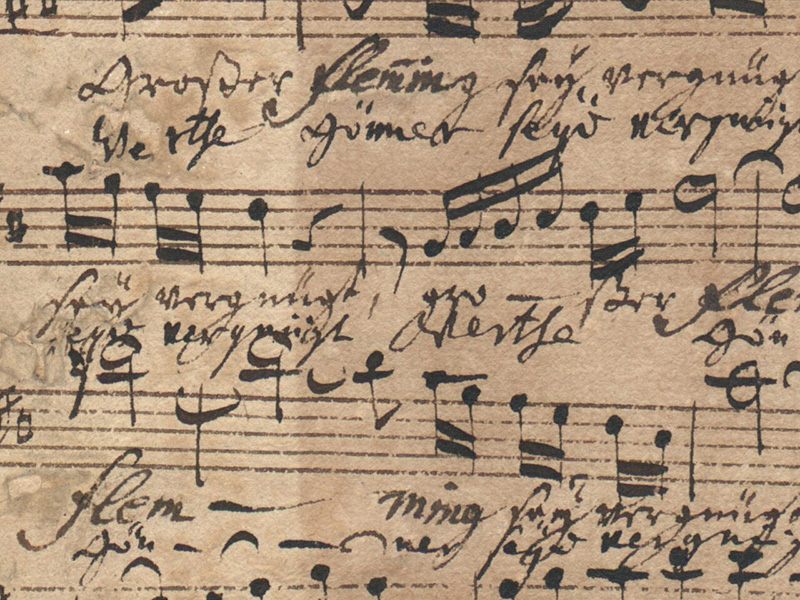 Großer Flem̅ing seÿ vergnüg
Werthe Gönner seÿd vergnügt
seÿ vergnügt, gro — ßer Flem
seÿd vergnügt Werthe Gön
Flem — ming seÿ vergnügt
Gön — — ner seÿd vergnüg